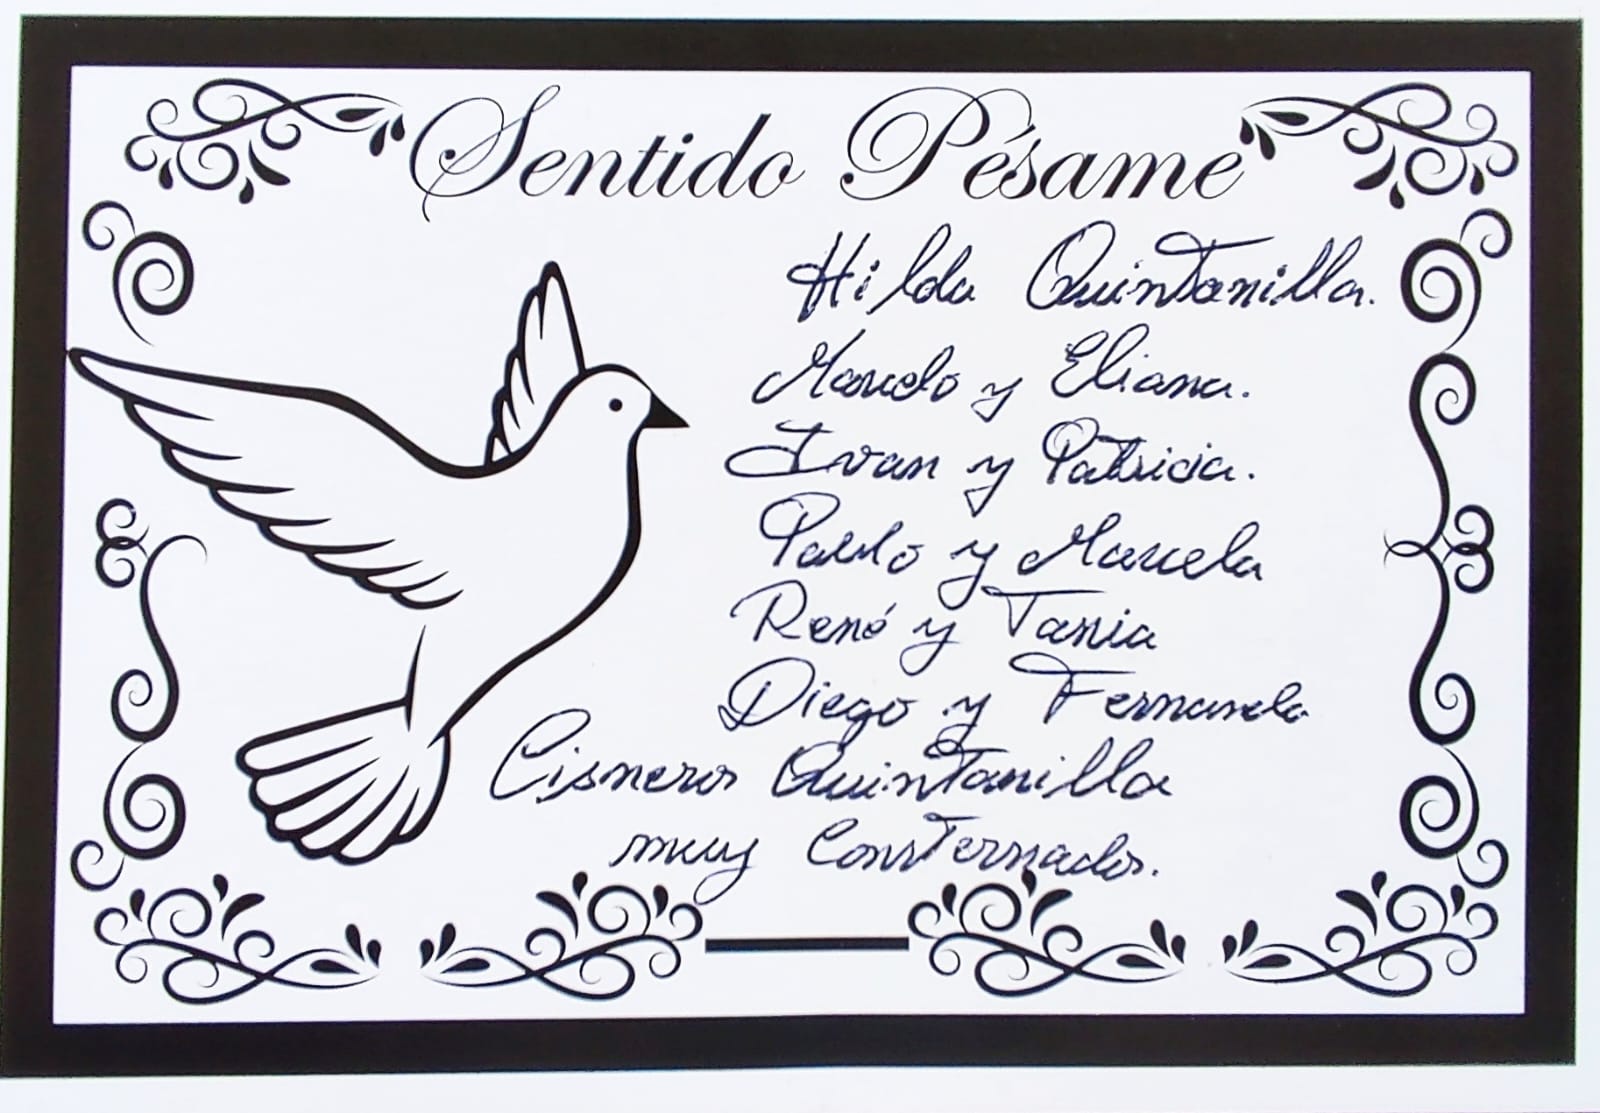 Sentido Pésame
Hilda Quintanilla.
Marcelo y Eliana.
Ivan y Patricia.
Pablo y Marcela
René y Tania
Diego y Fernanda
Cisneros Quintanilla
muy Consternados.